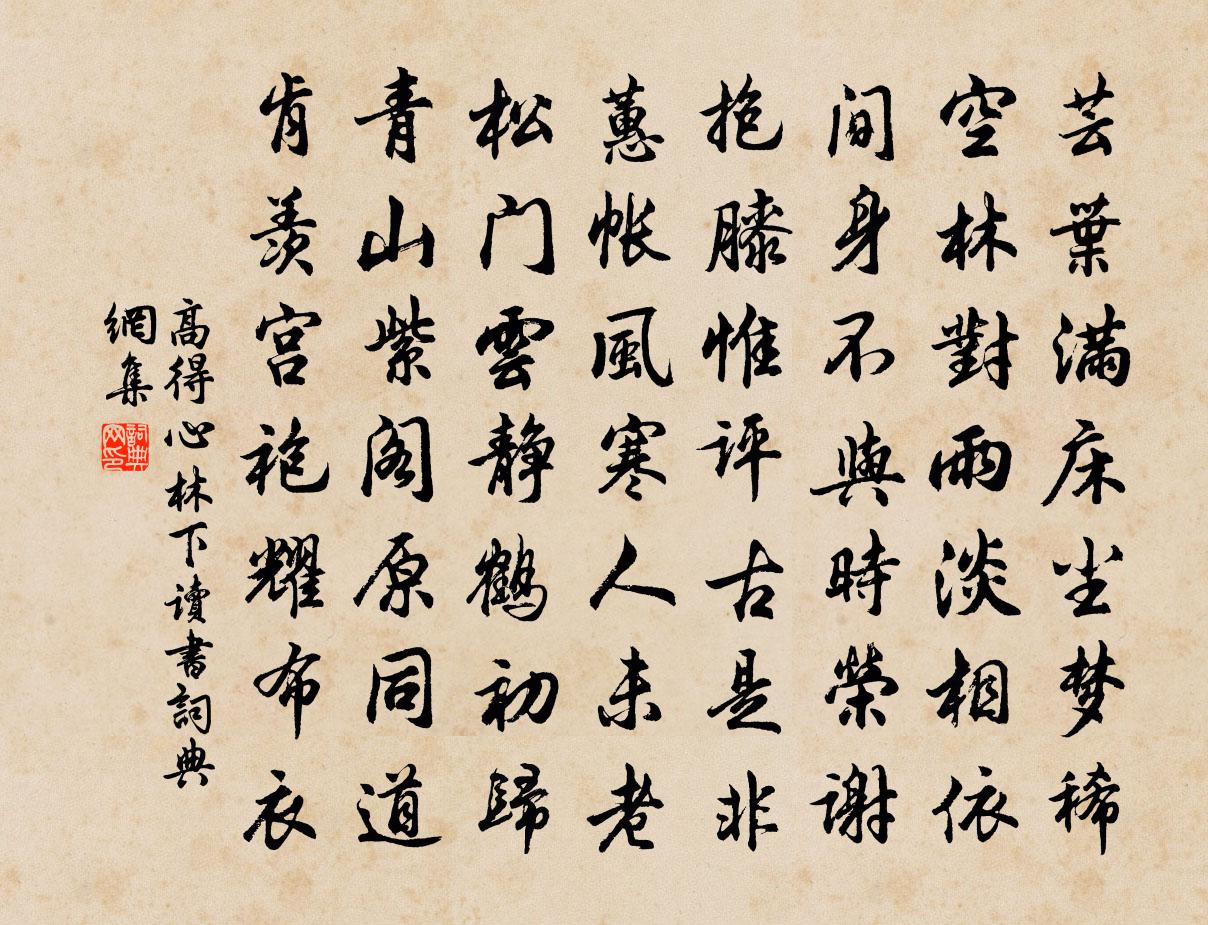 芸葉滿床尘梦稀
空林對雨淡相依
间身不與時榮謝
抱膝惟评古是非
蕙帐風寒人未老
松门雲静鹤初歸
青山紫阁原同道
肯羡宫袍耀布衣
高得心林下讀書詞典
網集
詞典
网印